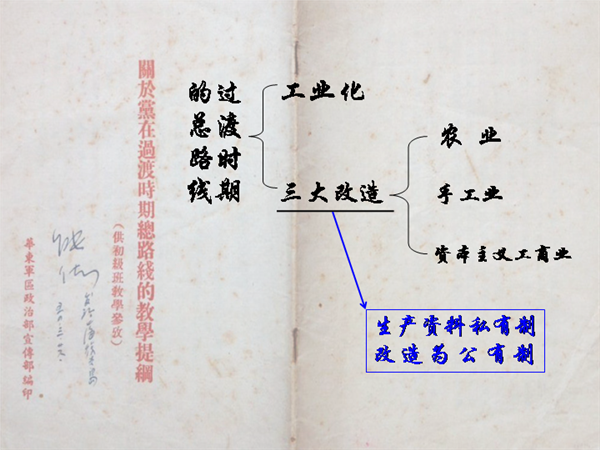 關於黨在過渡時期總路綫的教學提綱
（供初級班教學參攷）
華東軍區政治部宣傳部編印
过渡时期
的总路线
工业化
三大改造
农业
手工业
资本主义工商业
生产资料私有制
改造为公有制